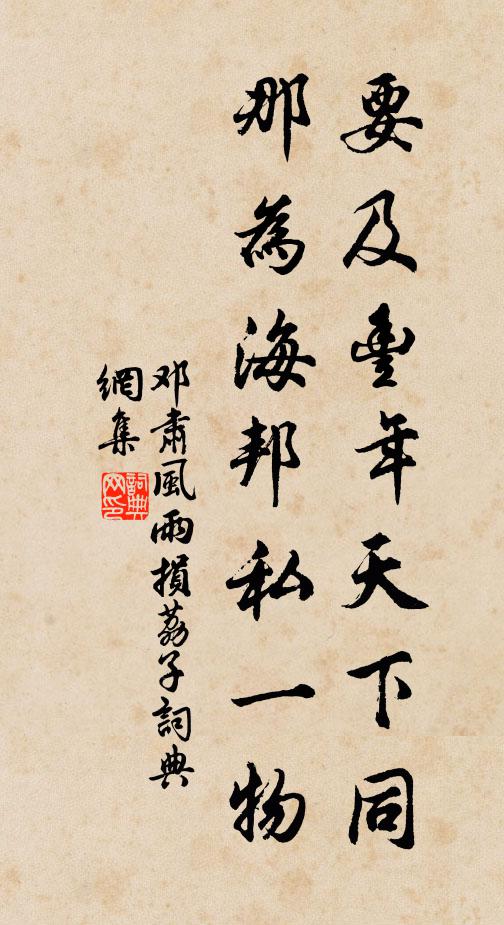 要及豊年天下同
那為海邦私一物
邓肅風雨損荔子詞典
網集
詞典
网印